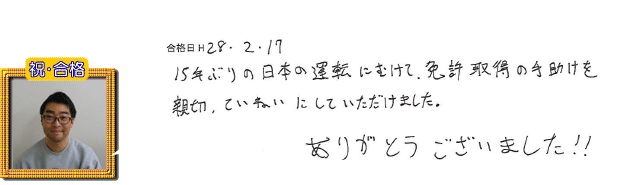 祝・合格
合格日 H28.2.17
15年ぶりの日本の運転にむけて、免許取得の手助けを
親切、ていねいにしていただけました。
ありがとうございました!!